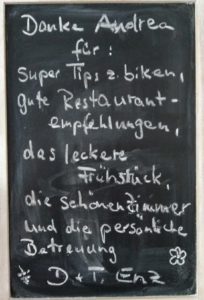 Danke Andrea
für:
super Tips z. biken,
gute Restaurant-
empfehlungen,
das leckere
Frühstück,
die schönen Zimmer
und die persönliche
Betreuung
D + T. Enz